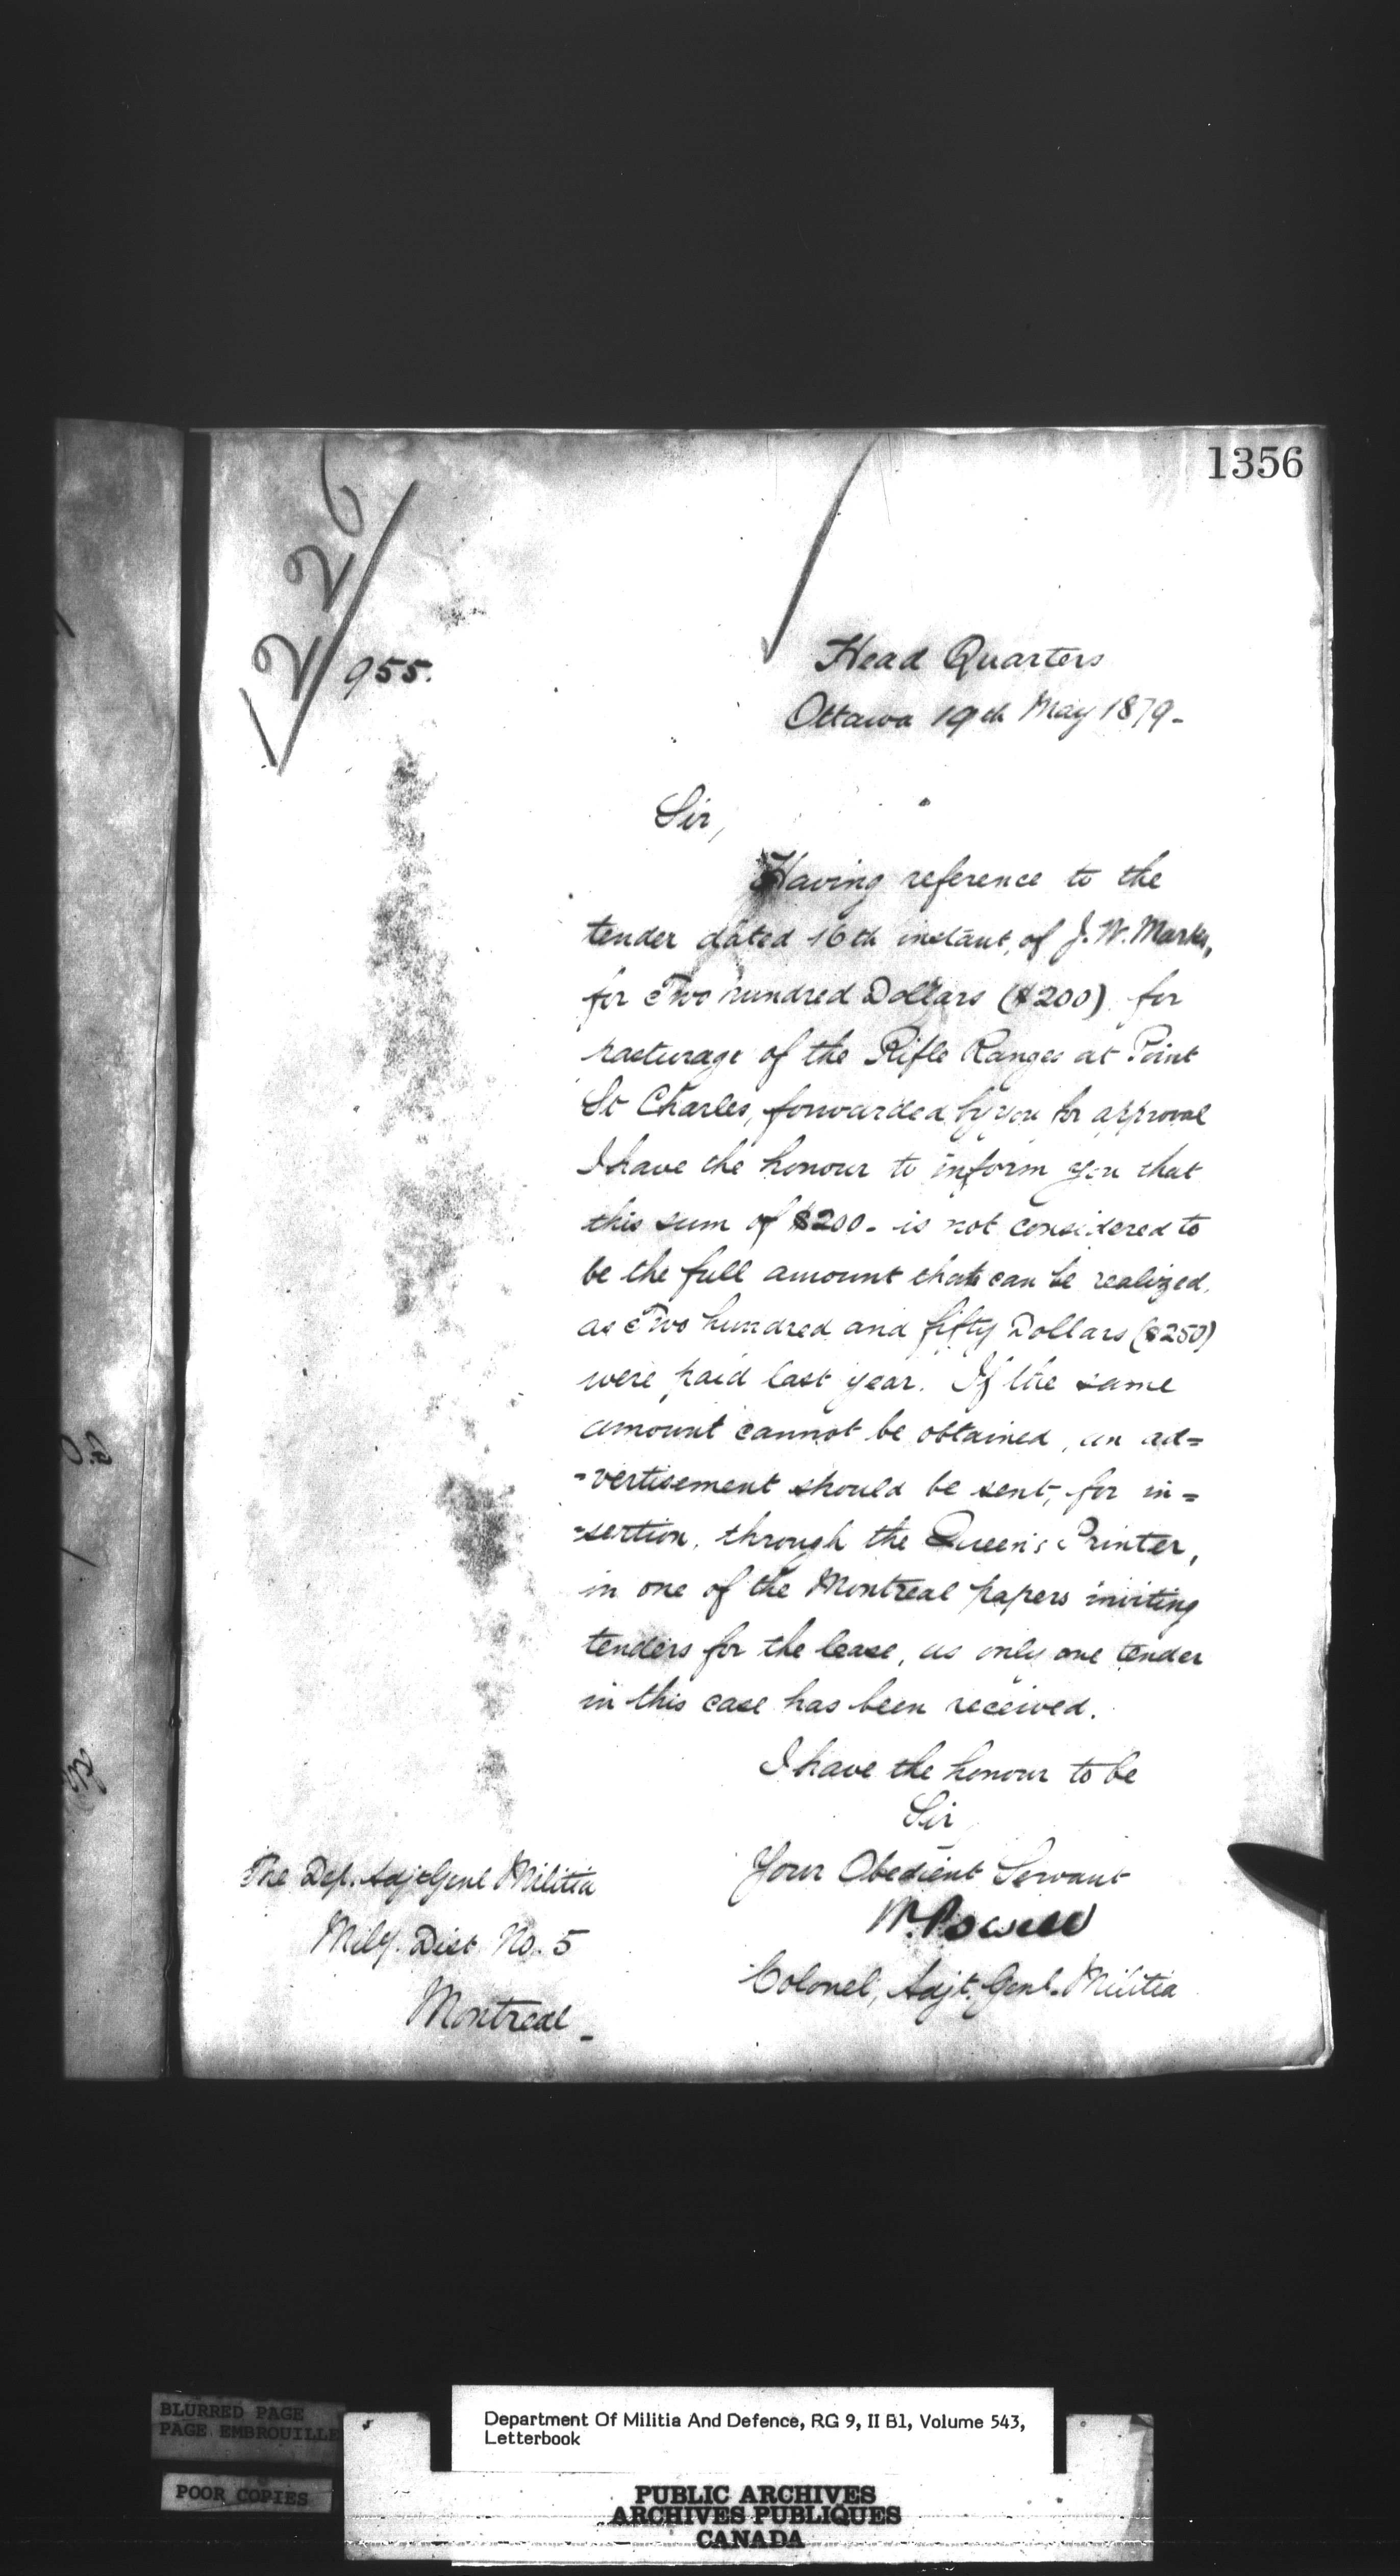 1356
226
955.
Head Quarters
Ottawa 19th May 1879-
Sir,
Having reference to the
tender dated 16th instant, of J. W. Marks,
for Two hundred Dollars ($200) for
pasturage of the Rifle Ranges at Point
St Charles, forwarded by you for approval
I have the honour to inform you that
this sum of $200- is not considered to
be the full amount that can be realized,
as Two hundred and fifty Dollars ($250)
were paid last year. If the same
amount cannot be obtained, an ad=
-vertisement should be sent, for in=
=sertion, through the Queen's Printer,
in one of the Montreal papers inviting
tenders for the lease, as only one tender
in this case has been received.
I have the honour to be
Sir
Your Obedient Servant
W. Powell
Colonel, Adjt. Genl. Militia
The Dep. Adjt Genl Militia
Mily. Dist. No. 5
Montreal-
BLURRED PAGE
PAGE EMBROUILLE
POOR COPIES
Department Of Militia And Defence, RG 9, II B1, Volume 543,
Letterbook
PUBLIC ARCHIVES
ARCHIVES PUBLIQUES
CANADA